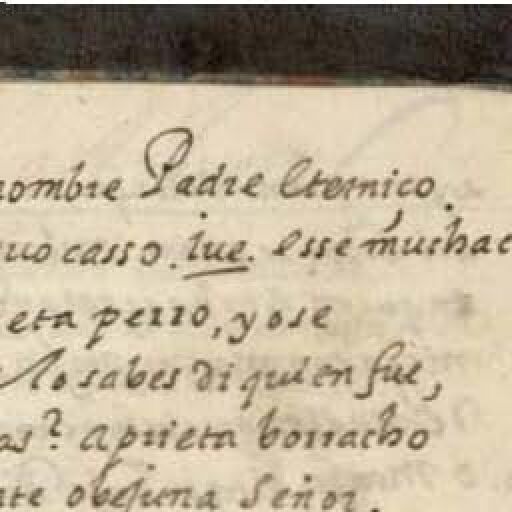 nombre Padre Eternico.
casso. iue. esse muchac
eta perro, yo se
lo sabes di quien fue,
as? aprieta borracho
nte obejuna Señor.